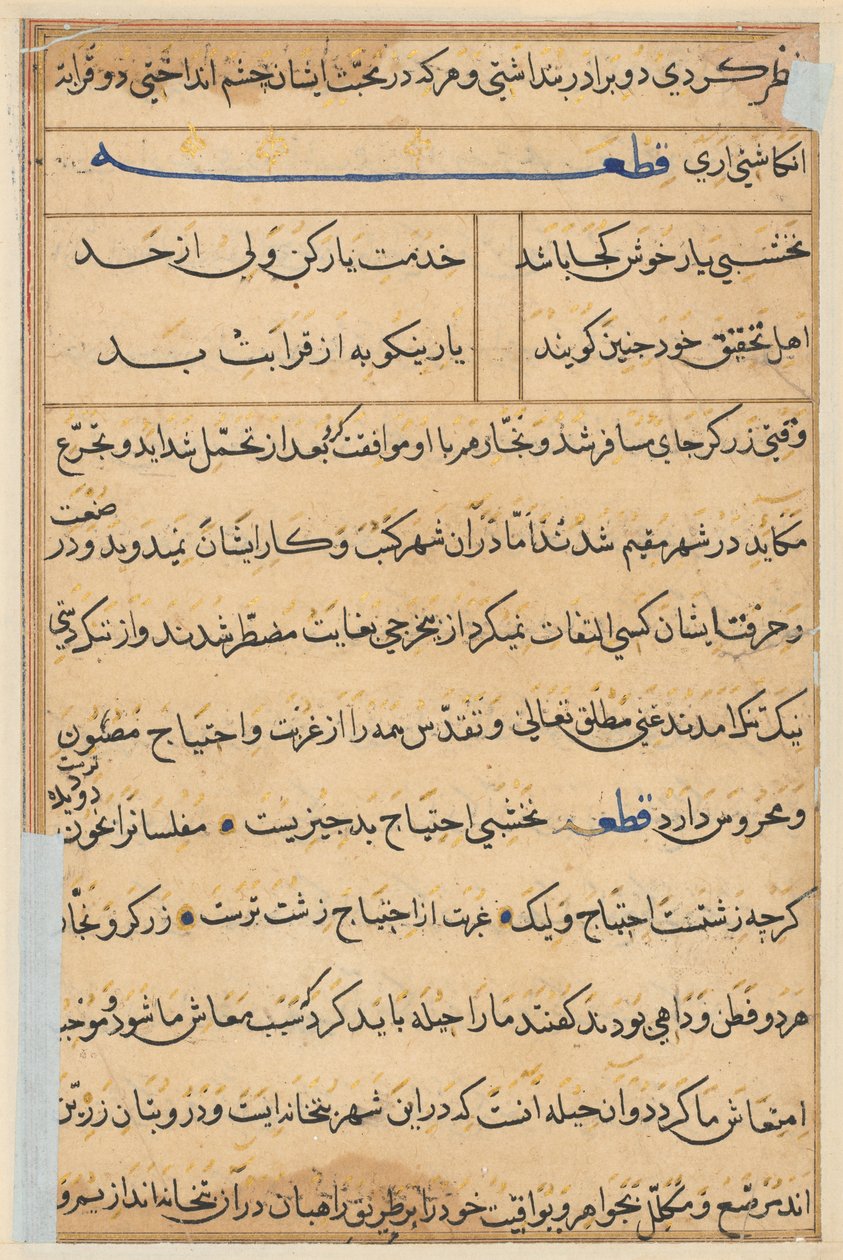 نظر کردي دو برادر بنداشتي و هرکه در محبّت ایشان چشم انداختي دو قرابة
انکاشتي اري قطعه
نخشبي یار خوش کجا باشد خدمت یار کن ولی از حد
اهل تحقیق خود جنین کویند یار نیکو به از قرابت بد
وقتي زرکر جاي مسافر شد و نجّار هم با او موافقت کرد بعد از تحمّل شداید و تجرّع
مکاید در شهر مقیم شدند امّا دران شهر کسب و کار ایشان نمیدوید و در صنعت
و حرفت ایشان کسي التفات نمیکرد از بیخرجي بغایت مضطر شدند و از تنک دستي
بنک امدند غني مطلق تعالی و تقدّس همه را از غربت و احتیاج مصئون
و محروس دارد قطعه نخشبي احتیاج بد جیزیست مفلسانرا بخون دویده ترست
کرچه زشتست احتیاج ولیک غربت از احتیاج زشت ترست زرکر و نجّار
هر دو فطن و داهي بودند کفتند ما را حیله باید کرد که سبب معاش ما شود و موجب
امتعاش ما کردد و ان حیله انست که در این شهر بتخانه ایست و در و بتان زرین
اند مرصّع و مکلّل بجواهر و یواقیت خود را بر طریق راهبان در آن بتخانه اندازیم و